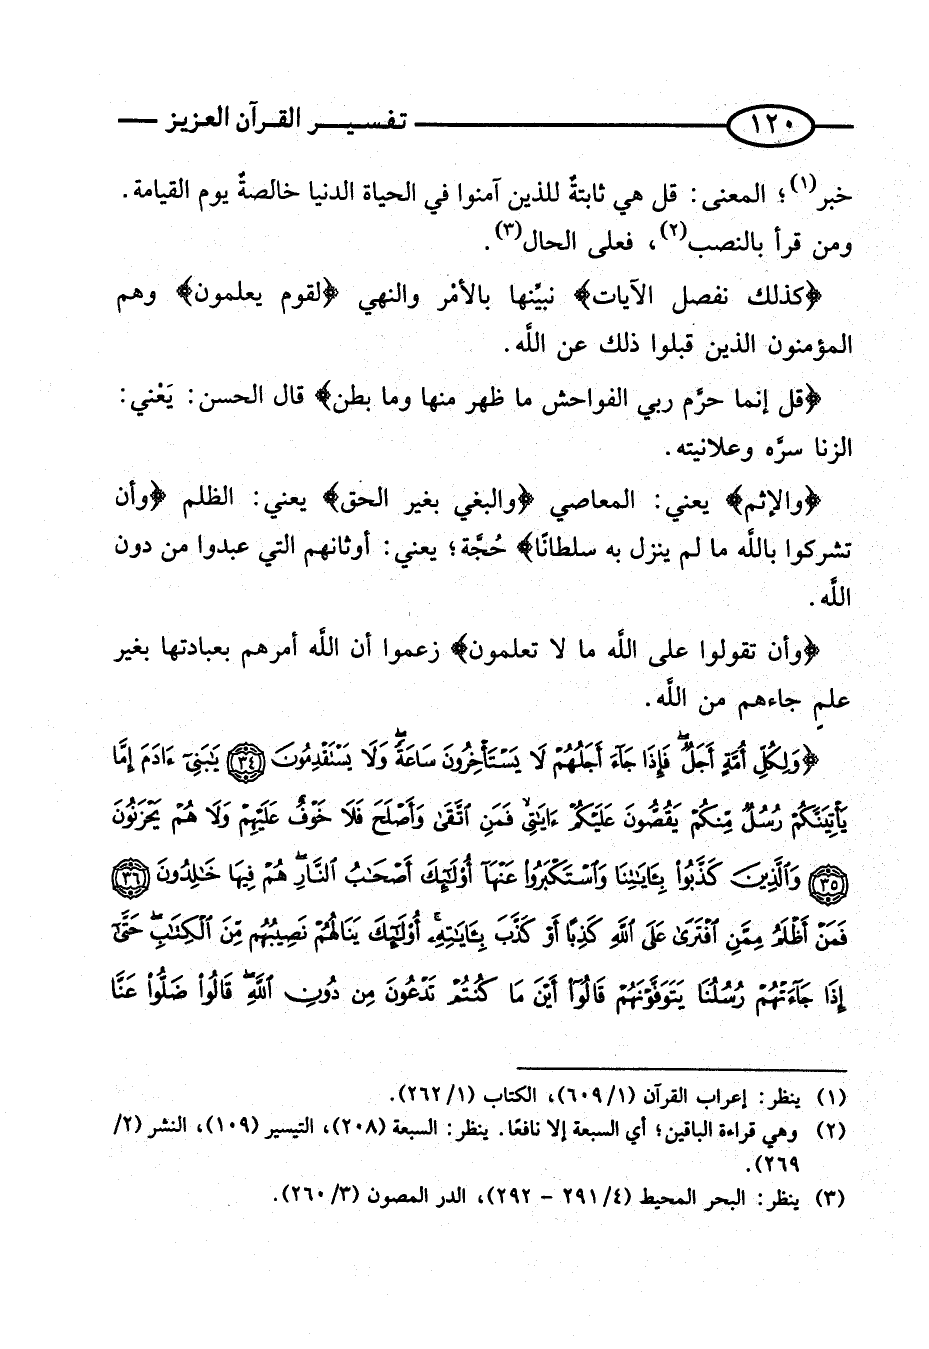 ١٢٠ تفسير القرآن العزيز
خبر(١)؛ المعنى: قل هي ثابتةٌ للذين آمنوا في الحياة الدنيا خالصةٌ يوم القيامة.
ومن قرأ بالنصب(٢)، فعلى الحال(٣).
﴿كذلك نفصل الآيات﴾ نبيِّنها بالأمْر والنهي ﴿لقوم يعلمون﴾ وهم
المؤمنون الذين قبلوا ذلك عن اللَّه.
﴿قل إنما حرَّم ربي الفواحش ما ظهر منها وما بطن﴾ قال الحسن: يَعْني:
الزنا سرَّه وعلانيته.
﴿والإثم﴾ يعني: المعاصي ﴿والبغي بغير الحق﴾ يعني: الظلم ﴿وأن
تشركوا باللَّه ما لم ينزل به سلطانًا﴾ حُجَّة؛ يعني: أوثانهم التي عبدوا من دون
اللَّه.
﴿وأن تقولوا على اللَّه ما لا تعلمون﴾ زعموا أن اللَّه أمرهم بعبادتها بغير
علمٍ جاءهم من اللَّه.
﴿وَلِكُلِّ أُمَّةٍ أَجَلٌۖ فَإِذَا جَآءَ أَجَلُهُمْ لَا يَسْتَأْخِرُونَ سَاعَةًۖ وَلَا يَسْتَقْدِمُونَ ﴿٣٤﴾ يَٰبَنِىٓ ءَادَمَ إِمَّا
يَأْتِيَنَّكُمْ رُسُلٌ مِّنكُمْ يَقُصُّونَ عَلَيْكُمْ ءَايَٰتِىۙ فَمَنِ ٱتَّقَىٰ وَأَصْلَحَ فَلَا خَوْفٌ عَلَيْهِمْ وَلَا هُمْ يَحْزَنُونَ
﴿٣٥﴾ وَٱلَّذِينَ كَذَّبُوا۟ بِـَٔايَٰتِنَا وَٱسْتَكْبَرُوا۟ عَنْهَآ أُو۟لَٰٓئِكَ أَصْحَٰبُ ٱلنَّارِۖ هُمْ فِيهَا خَٰلِدُونَ ﴿٣٦﴾
فَمَنْ أَظْلَمُ مِمَّنِ ٱفْتَرَىٰ عَلَى ٱللَّهِ كَذِبًا أَوْ كَذَّبَ بِـَٔايَٰتِهِۦٓۚ أُو۟لَٰٓئِكَ يَنَالُهُمْ نَصِيبُهُم مِّنَ ٱلْكِتَٰبِۖ حَتَّىٰٓ
إِذَا جَآءَتْهُمْ رُسُلُنَا يَتَوَفَّوْنَهُمْ قَالُوٓا۟ أَيْنَ مَا كُنتُمْ تَدْعُونَ مِن دُونِ ٱللَّهِۖ قَالُوا۟ ضَلُّوا۟ عَنَّا
(١) ينظر: إعراب القرآن (١/ ٦٠٩)، الكتاب (١/ ٢٦٢).
(٢) وهي قراءة الباقين؛ أي السبعة إلا نافعًا. ينظر: السبعة (٢٠٨)، التيسير (١٠٩)، النشر (٢/
٢٦٩).
(٣) ينظر: البحر المحيط (٤/ ٢٩١ - ٢٩٢)، الدر المصون (٣/ ٢٦٠).